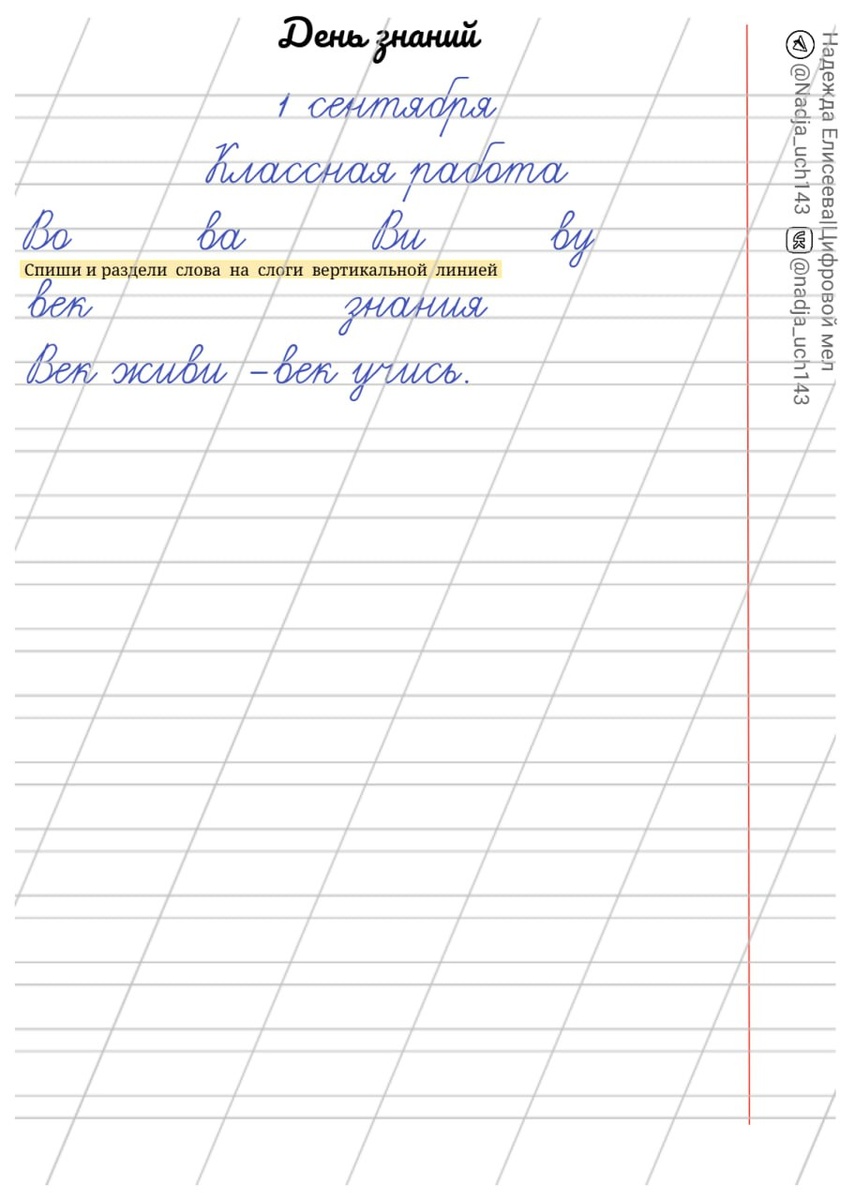 День знаний
1 сентября
Классная работа
Во ва Ви ву
Спиши и раздели слова на слоги вертикальной линией
век знания
Век живи – век учись.
Надежда Елисеева|Цифровой мел
@Nadja_uch143 @nadja_uch143